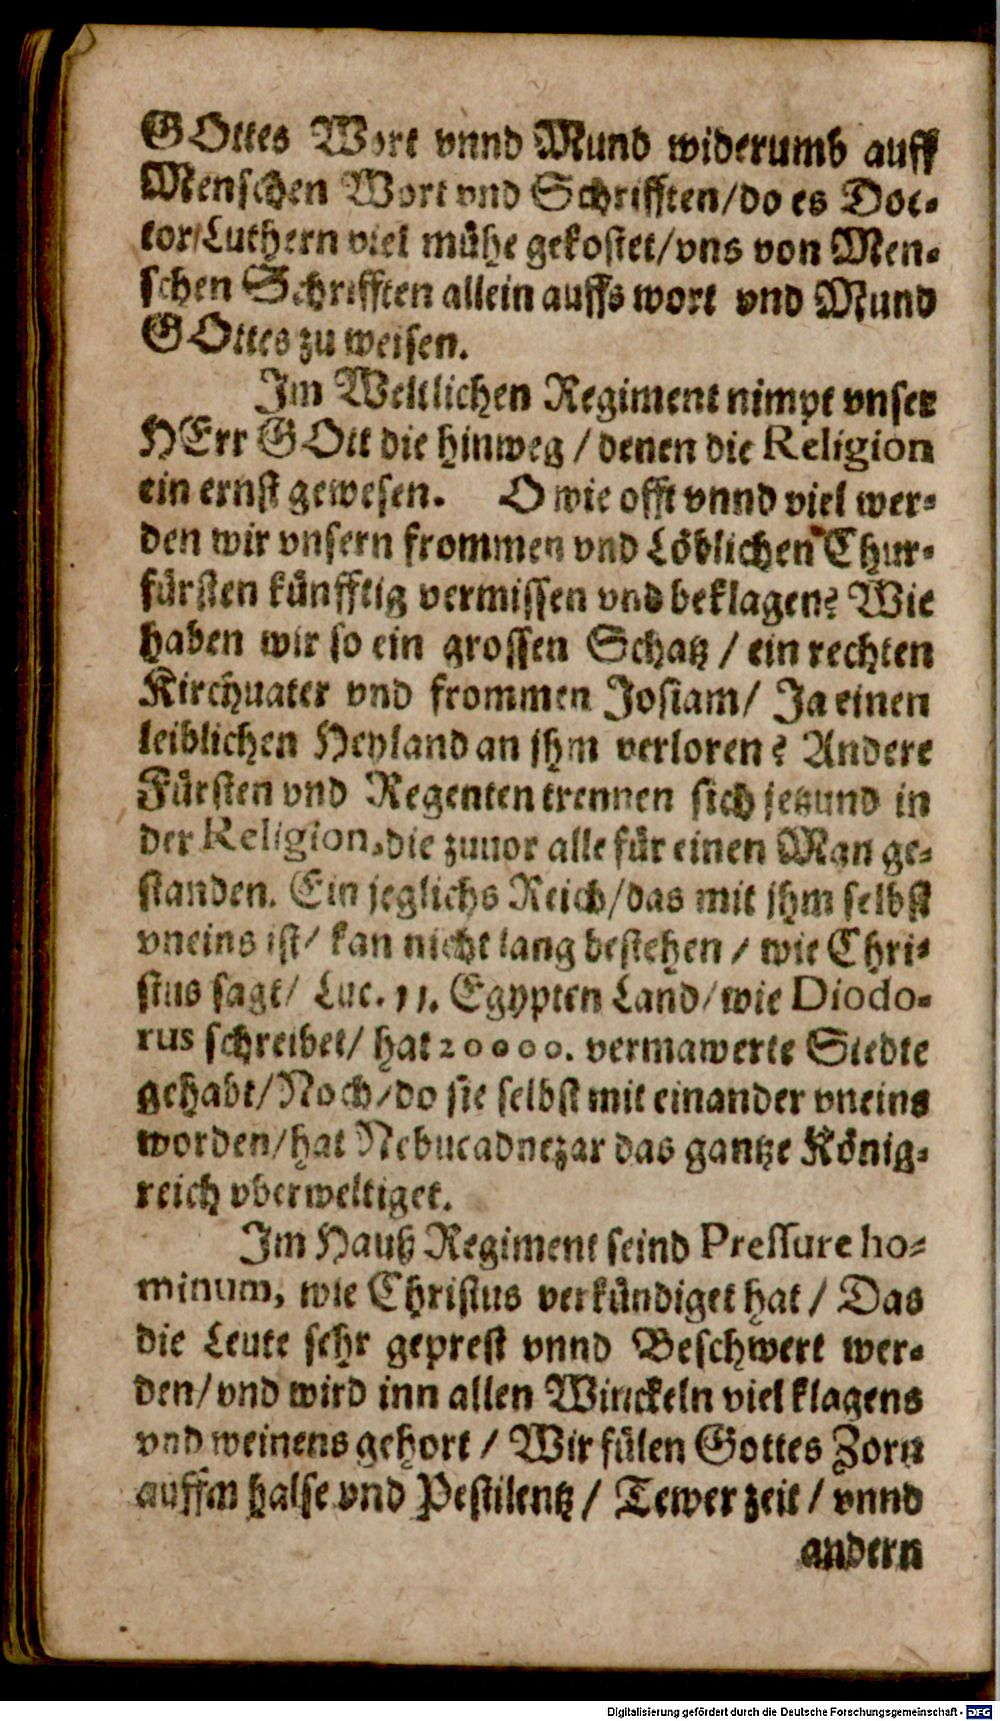 GOttes Wort vnnd Mund widerumb auff
Menschen Wort vnd Schrifften/do es Doc-
tor Luthern viel mühe gekostet/vns von Men-
schen Schrifften allein auffs wort vnd Mund
GOttes zu weisen.
Im Weltlichen Regiment nimpt vnser
HErr GOtt die hinweg / denen die Religion
ein ernst gewesen. O wie offt vnnd viel wer-
den wir vnsern frommen vnd Löblichen Chur-
fürsten künfftig vermissen vnd beklagen? Wie
haben wir so ein grossen Schatz / ein rechten
Kirchuater vnd frommen Josiam/ Ja einen
leiblichen Heyland an jhm verloren? Andere
Fürsten vnd Regenten trennen sich jetzund in
der Religion, die zuuor alle für einen Man ge-
standen. Ein jeglichs Reich/das mit jhm selbst
vneins ist/ kan nicht lang bestehen / wie Chri-
stus sagt/ Luc. 11. Egypten Land/wie Diodo-
rus schreibet/ hat 20000. vermawerte Stedte
gehabt/Noch/do sie selbst mit einander vneins
worden/hat Nebucadnezar das gantze König-
reich vberweltiget.
Im Hauß Regiment seind Pressure ho-
minum, wie Christus verkündiget hat / Das
die Leute sehr geprest vnnd Beschwert wer-
den/vnd wird inn allen Winckeln viel klagens
vnd weinens gehort / Wir fülen Gottes Zorn
auffm halse vnd Pestilentz / Tewer zeit / vnnd
andern
Digitalisierung gefördert durch die Deutsche Forschungsgemeinschaft - DFG